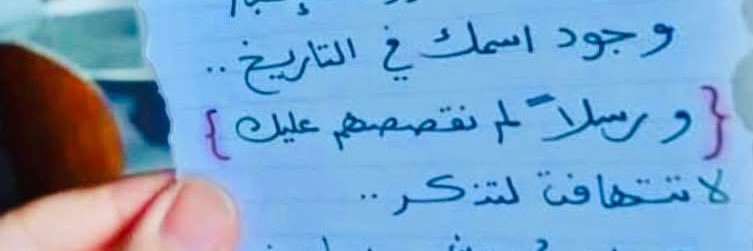 وجود اسمك في التاريخ ..
{ ورسلاً لم نقصصهم عليك }
لا تتهافت لتذكر ..